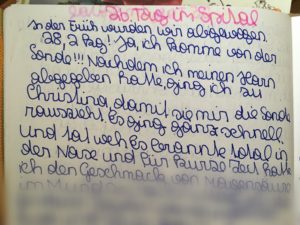 26. Tag im Spital
In der Früh wurden wir abgewogen.
28,2 kg! Ja, ich komme von der
Sonde!!! Nachdem ich meinen Harn
abgegeben hatte, ging ich zu
Christina, damit sie mir die Sonde
rauszieht. Es ging ganz schnell
und tat weh. Es brannte total in
der Nase und für kurze Zeit hatte
ich den Geschmack von Magensäure
im Mund.